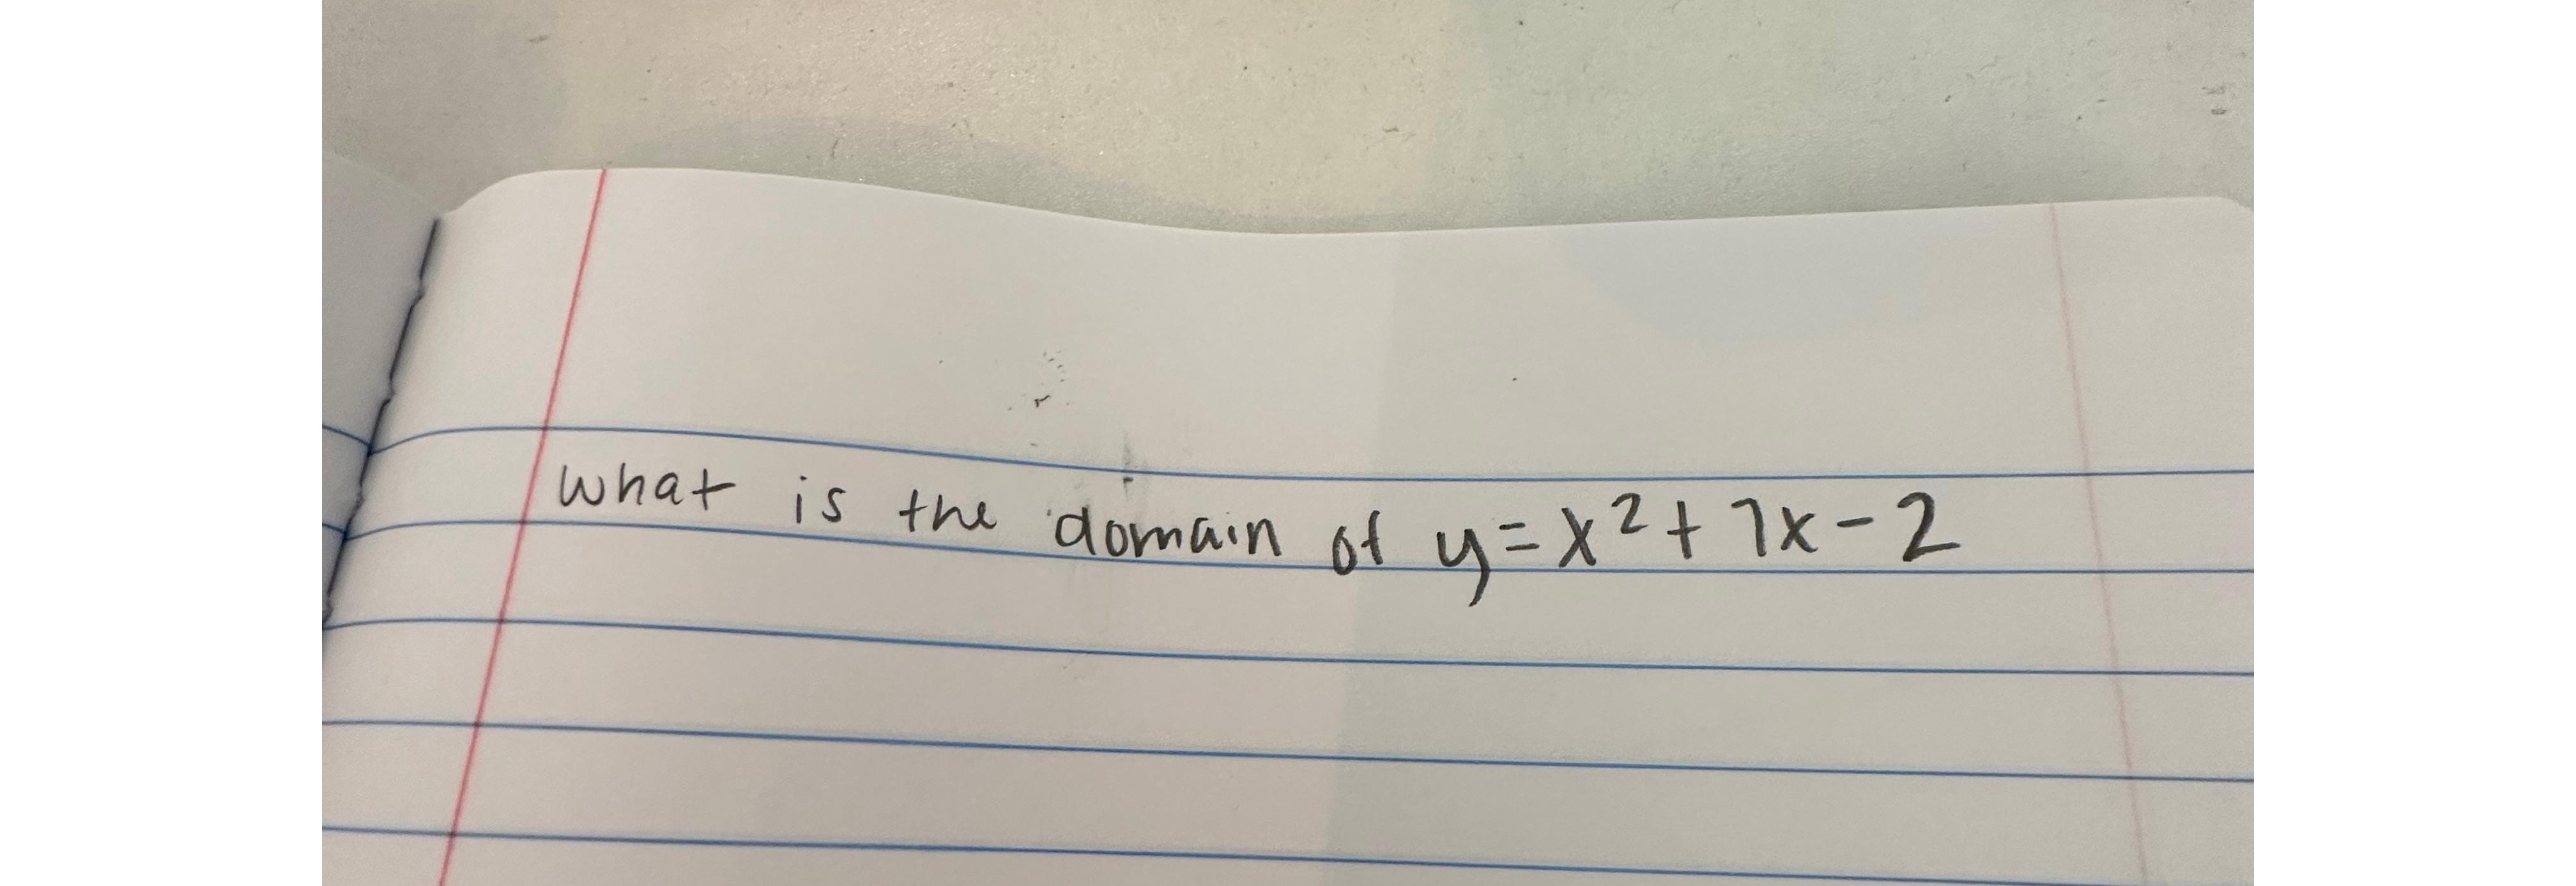 what is the domain of y=x²+7x-2